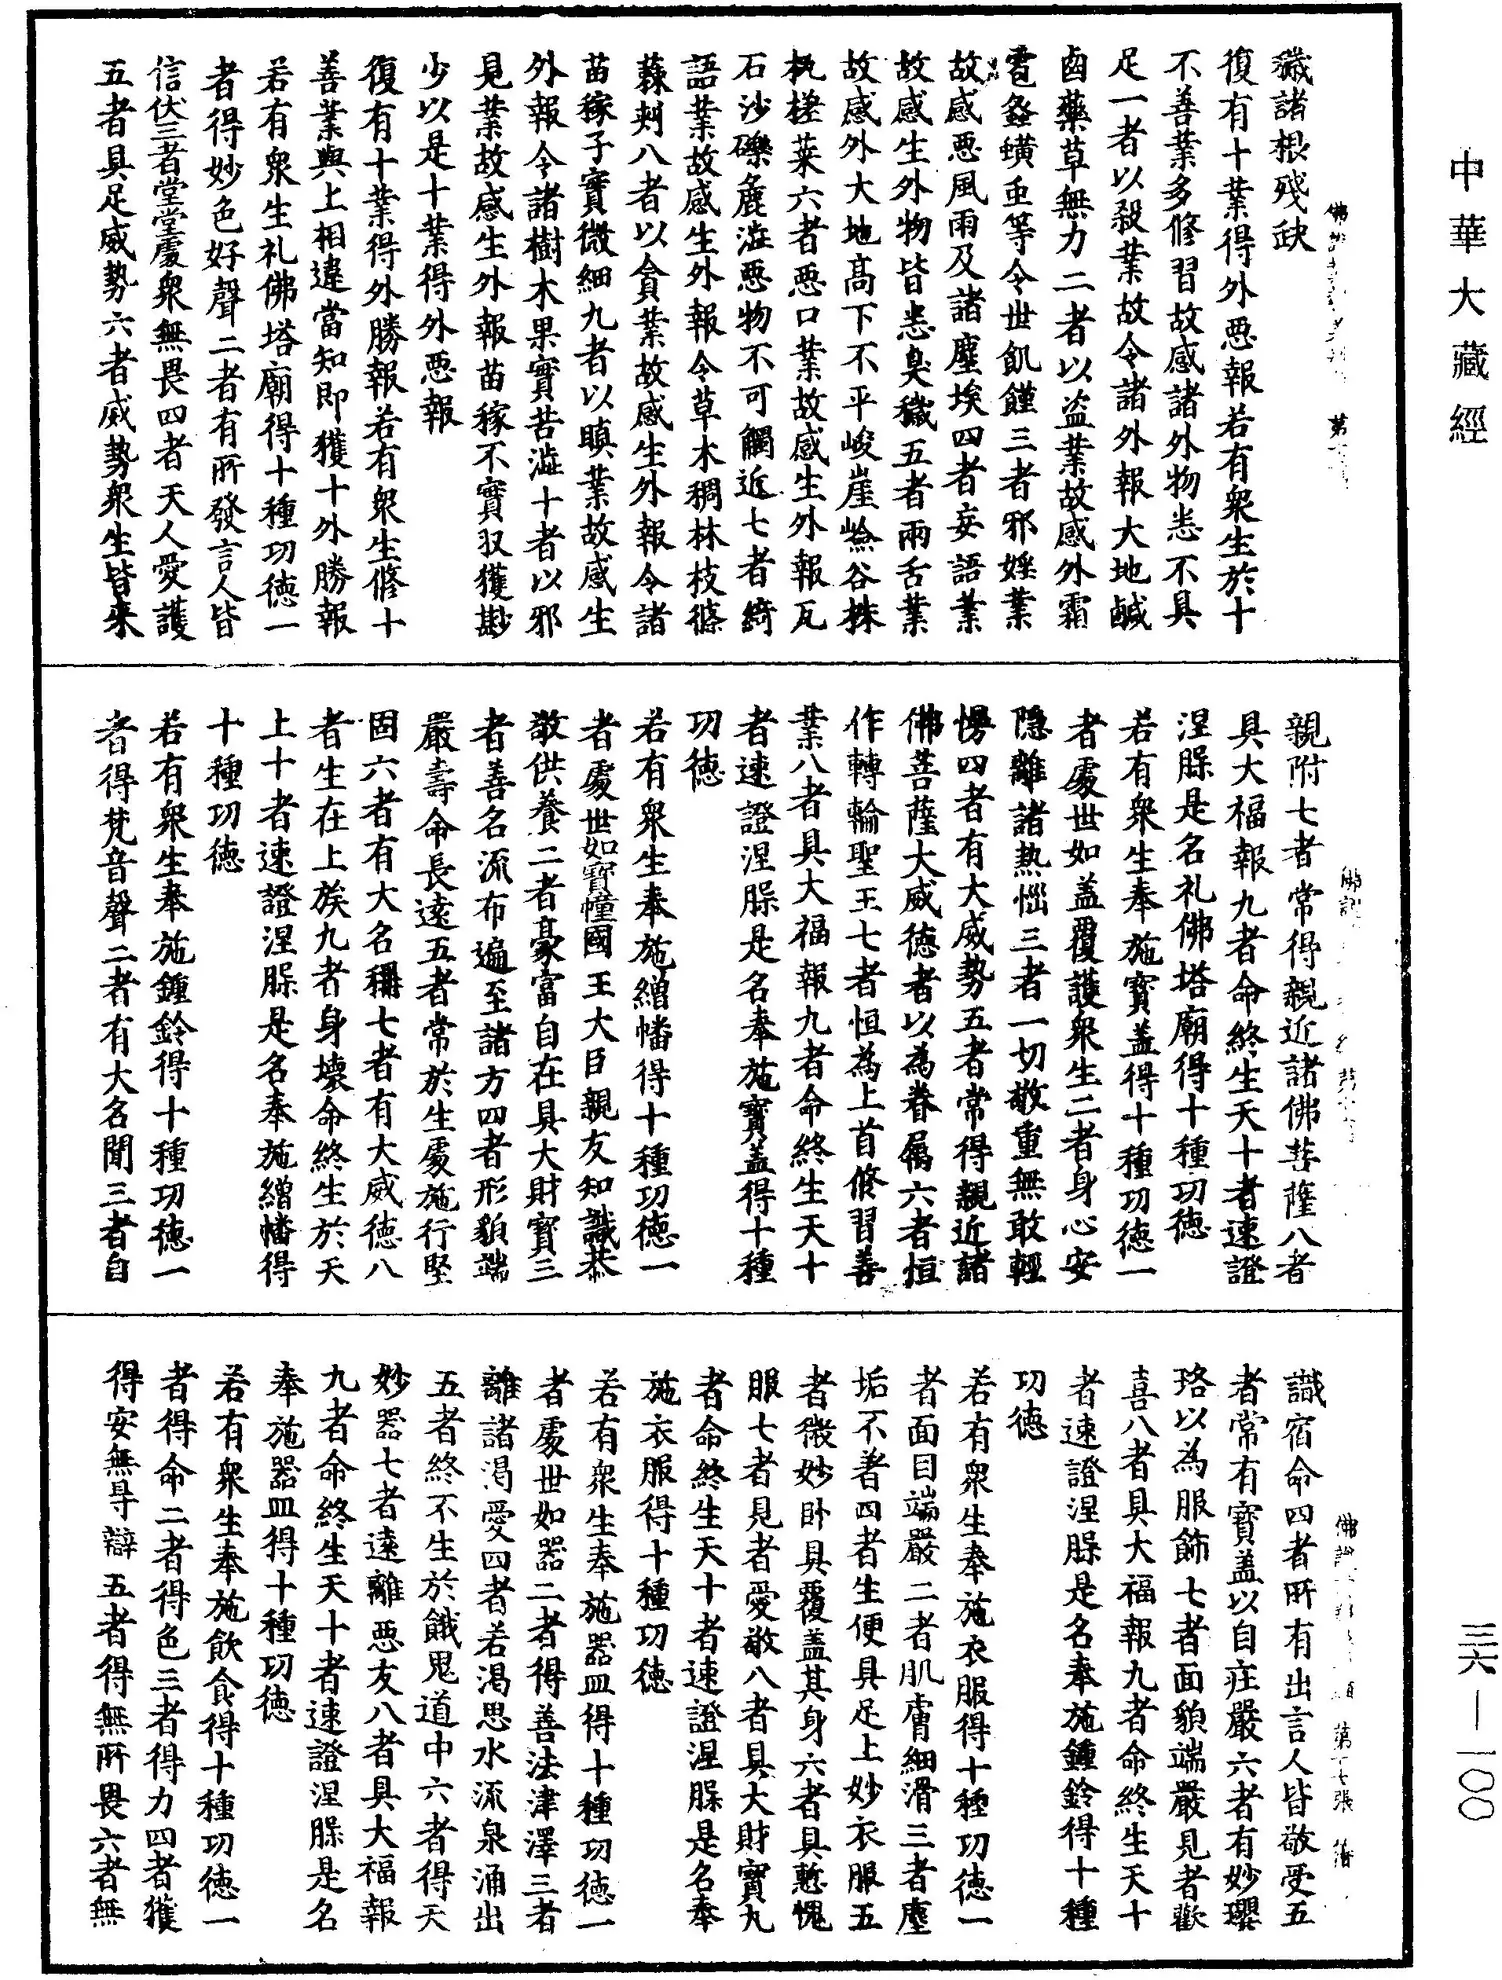 中華大藏經
穢諸根殘缺
復有十業得外惡報若有衆生於十
不善業多修習故感諸外物悉不具
足一者以殺業故令諸外報大地鹹
鹵藥草無力二者以盜業故感外霜
雹螽蝗虫等令世飢饉三者邪婬業
故感惡風雨及諸塵埃四者妄語業
故感生外物皆悉臭穢五者兩舌業
故感外大地高下不平峻崖嶮谷株
杌槎菜六者惡口業故感生外報瓦
石沙礫麁澁惡物不可觸近七者綺
語業故感生外報令草木稠林枝條
蕀刺八者以貪業故感生外報令諸
苗稼子實微細九者以瞋業故感生
外報令諸樹木果實苦澁十者以邪
見業故感生外報苗稼不實収獲尠
少以是十業得外惡報
復有十業得外勝報若有衆生脩十
善業與上相違當知即獲十外勝報
若有衆生礼佛塔廟得十種功德一
者得妙色好聲二者有所發言人皆
信伏三者堂堂處衆無畏四者天人愛護
五者具足威勢六者威勢衆生皆來
親附七者常得親近諸佛菩薩八者
具大福報九者命終生天十者速證
涅槃是名礼佛塔廟得十種功德
若有衆生奉施寶盖得十種功德一
者處世如盖覆護衆生二者身心安
隱離諸熱惱三者一切敬重無敢輕
慢四者有大威勢五者常得親近諸
佛菩薩大威德者以為眷屬六者恒
作轉輪聖王七者恒為上首脩習善
業八者具大福報九者命終生天十
者速證涅槃是名奉施寶盖得十種
功德
若有衆生奉施繒幡得十種功德一
者處世如寶幢國王大臣親友知識恭
敬供養二者豪富自在具大財寶三
者善名流布遍至諸方四者形貌端
嚴壽命長遠五者常於生處施行堅
固六者有大名稱七者有大威德八
者生在上族九者身壞命終生於天
上十者速證涅槃是名奉施繒幡得
十種功德
若有衆生奉施鍾鈴得十種功德一
者得梵音聲二者有大名聞三者自
識宿命四者所有出言人皆敬受五
者常有寶盖以自莊嚴六者有妙瓔
珞以為服飾七者面貌端嚴見者歡
喜八者具大福報九者命終生天十
者速證涅槃是名奉施鍾鈴得十種
功德
若有衆生奉施衣服得十種功德一
者面目端嚴二者肌膚細滑三者塵
垢不著四者生便具足上妙衣服五
者微妙卧具覆盖其身六者具慙愧
服七者見者愛敬八者具大財寶九
者命終生天十者速證涅槃是名奉
施衣服得十種功德
若有衆生奉施器皿得十種功德一
者處世如器二者得善法津澤三者
離諸渴愛四者若渴思水流泉涌出
五者終不生於餓鬼道中六者得天
妙器七者遠離惡友八者具大福報
九者命終生天十者速證涅槃是名
奉施器皿得十種功德
若有衆生奉施飲食得十種功德一
者得命二者得色三者得力四者獲
得安無㝵辯五者得無所畏六者無
三六—一〇〇